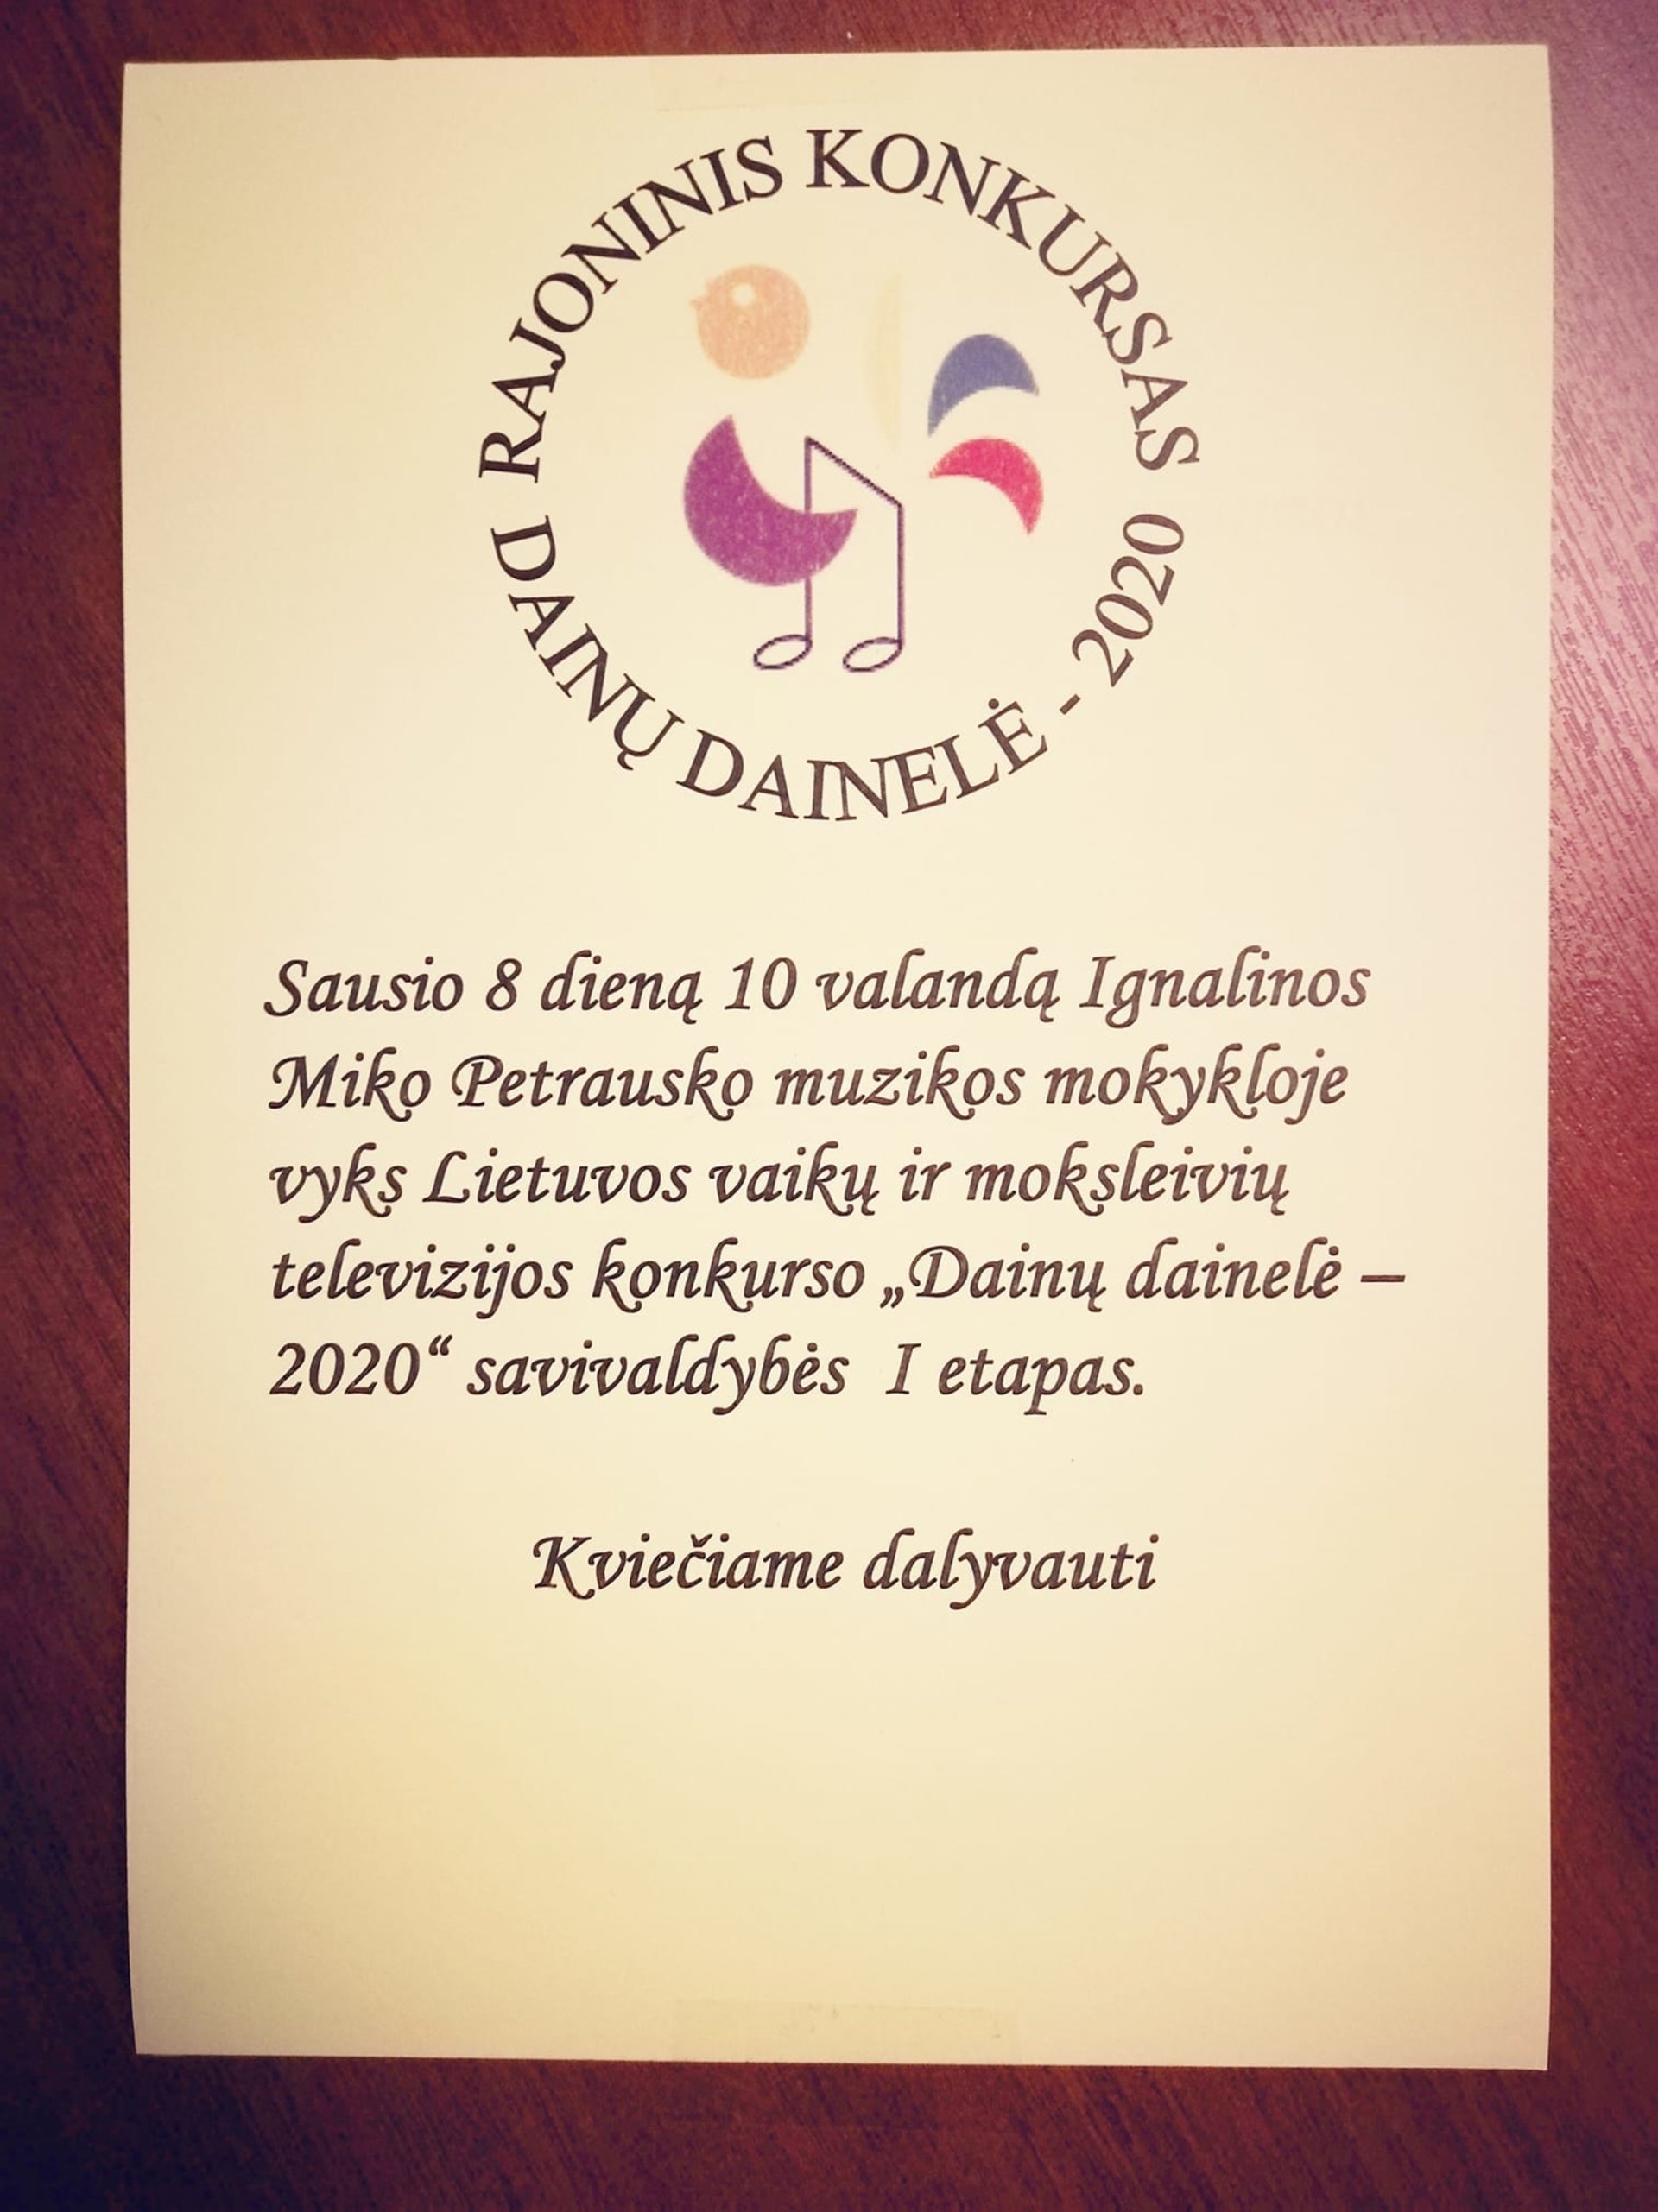 RAJONINIS KONKURSAS
DAINŲ DAINELĖ - 2020
Sausio 8 dieną 10 valandą Ignalinos
Miko Petrausko muzikos mokykloje
vyks Lietuvos vaikų ir moksleivių
televizijos konkurso „Dainų dainelė –
2020“ savivaldybės I etapas.
Kviečiame dalyvauti